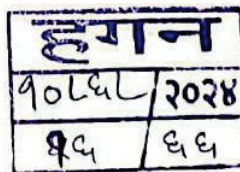 हगन
१०८६८/२०२४
१६/६६